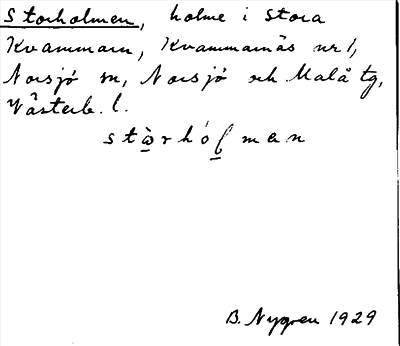 Storholmen, holme i Stora
Kvammarn, Kvammarnäs nr 1,
Norsjö sn, Norsjö och Malå tg,
Västerb. l.
stὰrhólman
B. Nygren 1929